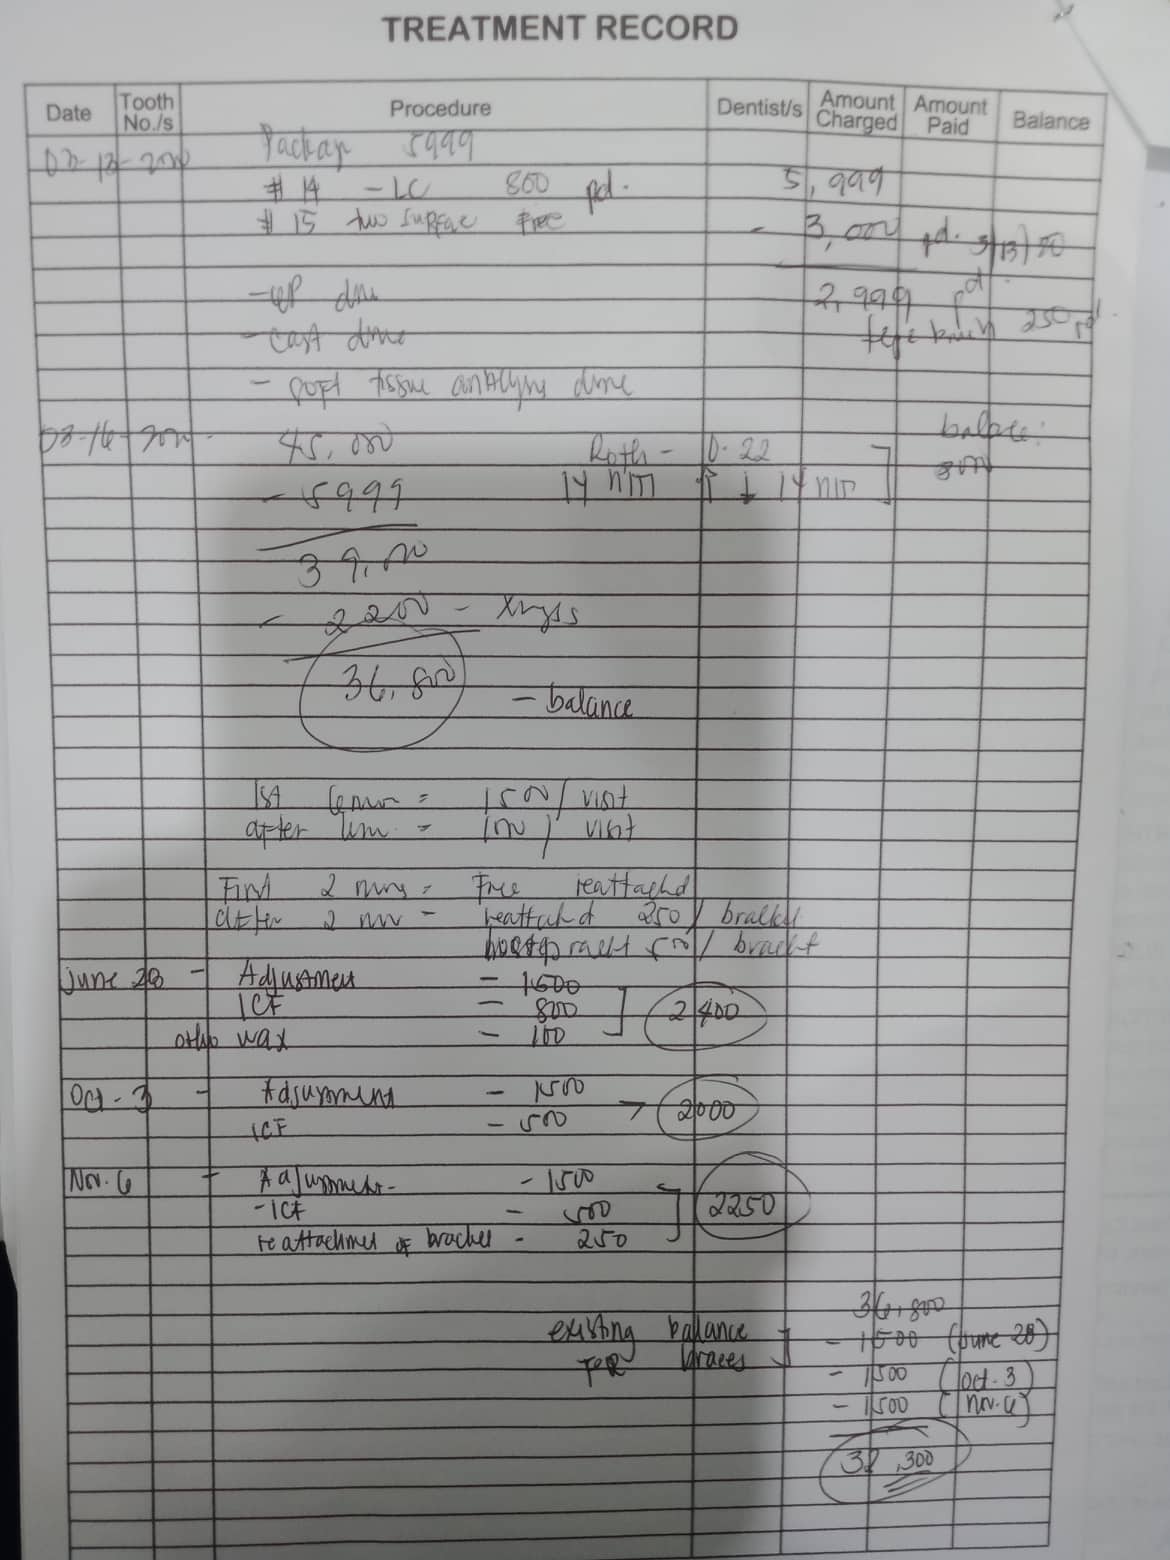 TREATMENT RECORD
Date Tooth No./s Procedure Dentist/s Amount Charged Amount Paid Balance
Package 5999
# 14 - LC 800 pd. 5,999
# 15 two surface Free - 3,000 pd. 3/13/20
2,999 pd.
250 pd.
- cast done
- soft tissue analysis done
balance:
45,000 Roth - 0.22
- 5999 14 niti ↑ ↓ 14 niti
39,000
- 2200 - xrays
36,800 - balance
1st = 1500 / visit
after = 1000 / visit
First 2 = Free reattachd
after 2 - reattachd 250 / bracket
500 / bracket
June 28 - Adjustment - 1500
ICF - 800 2400
ortho wax - 100
Oct - 3 - Adjustment - 1500
ICF - 500 2000
Nov. 6 - Adjustment - 1500
- ICF - 500 2250
reattachment of bracket - 250
36,800
existing balance - 1500 (June 28)
FOR braces - 1500 (Oct. 3)
- 1500 (Nov. 6)
32,300